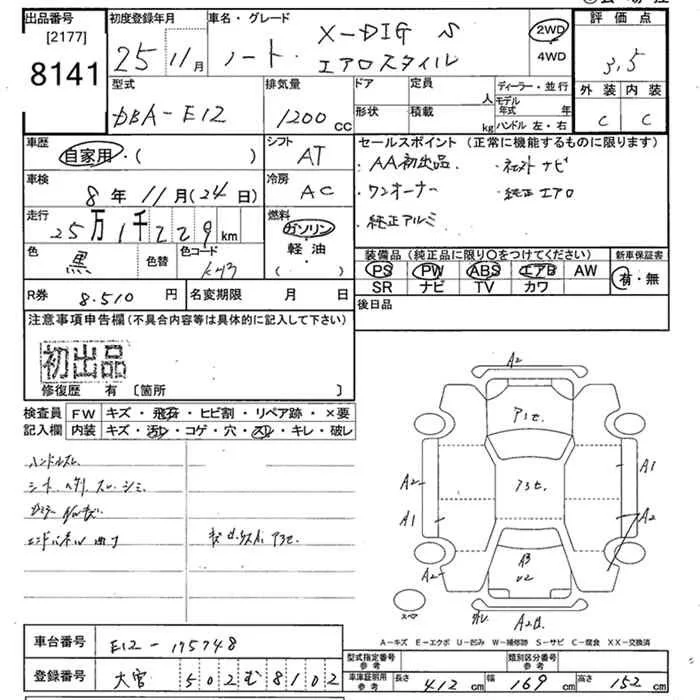 出品番号 [2177] 8141
初度登録年月 25 11月
車名・グレード ノート X-DIG S エアロスタイル
2WD
4WD
評価点 3,5
外装 C 内装 C
型式 DBA-E12
排気量 1200cc
ドア
形状
定員 人
積載 kg
ディーラー・並行
モデル年式 年
ハンドル 左・右
車歴 自家用・( )
シフト AT
車検 8年11月(24日)
冷房 AC
走行 25万1千229km
燃料 ガソリン 軽・油 ( )
色 黒 色替 色コード
R券 8.510円 名変期限 月 日
セールスポイント (正常に機能するものに限ります)
・AA初出品 ・社外ナビ
・ワンオーナー ・純正エアロ
・純正アルミ
装備品 (純正品に限り〇をつけてください) 新車保証書
PS PW ABS エアB AW 有・無
SR ナビ TV カワ
後日品
注意事項申告欄 (不具合内容等は具体的に記入して下さい)
初出品
修復歴 有 〔箇所 〕
検査員 FW キズ・飛石・ヒビ割・リペア跡・×要
記入欄 内装 キズ・汚レ・コゲ・穴・スレ・キレ・破レ
ハンドルスレ
A2
A1セ.
A3セ.
A2 A1
A1 A2
A3
U2
A2
A2
A-キズ E-エクボ U-凹み W-補修跡 S-サビ C-腐食 XX-交換済
車台番号 E12-175748
登録番号 大宮 502む8102
型式指定番号 参考 類別区分番号 参考
車庫証明用 参考 長さ 412cm 幅 169cm 高さ 152cm